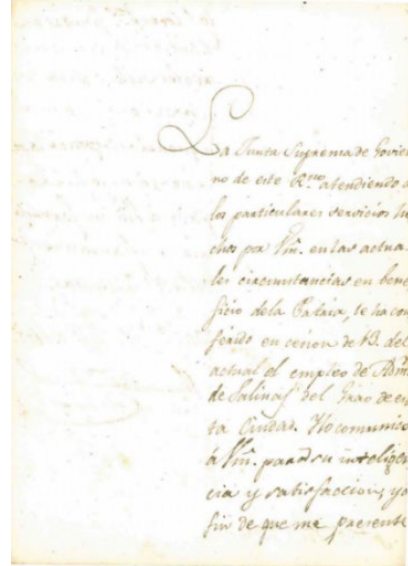 La Junta Suprema de Govier
no de este R.no atendiendo a
los particulares servicios he
chos por Vm. en las actua
les circunstancias en bene
ficio dela Patria, te ha con
ferido en cesion de 13. del
actual el empleo de Adm.
de Salinas del Grao de es
ta Ciudad. Y lo comunico
à Vm. para su inteligen
cia y satisfaccion, y a
fin de que me presente